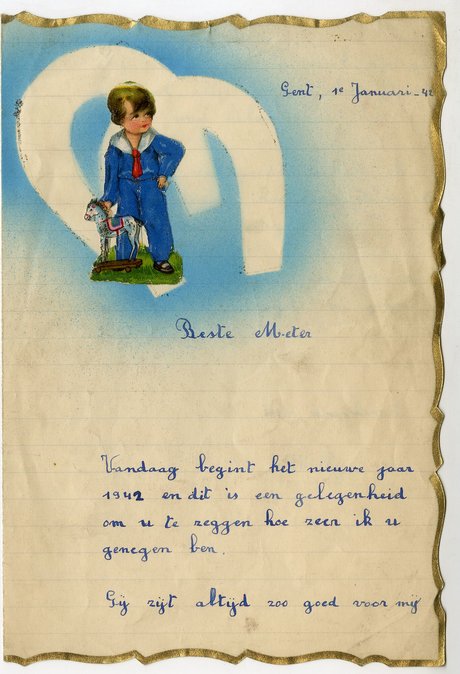 Gent, 1e Januari-42
Beste Meter
Vandaag begint het nieuwe jaar
1942 en dit is een gelegenheid
om u te zeggen hoe zeer ik u
genegen ben.
Gij zijt altijd zoo goed voor mij